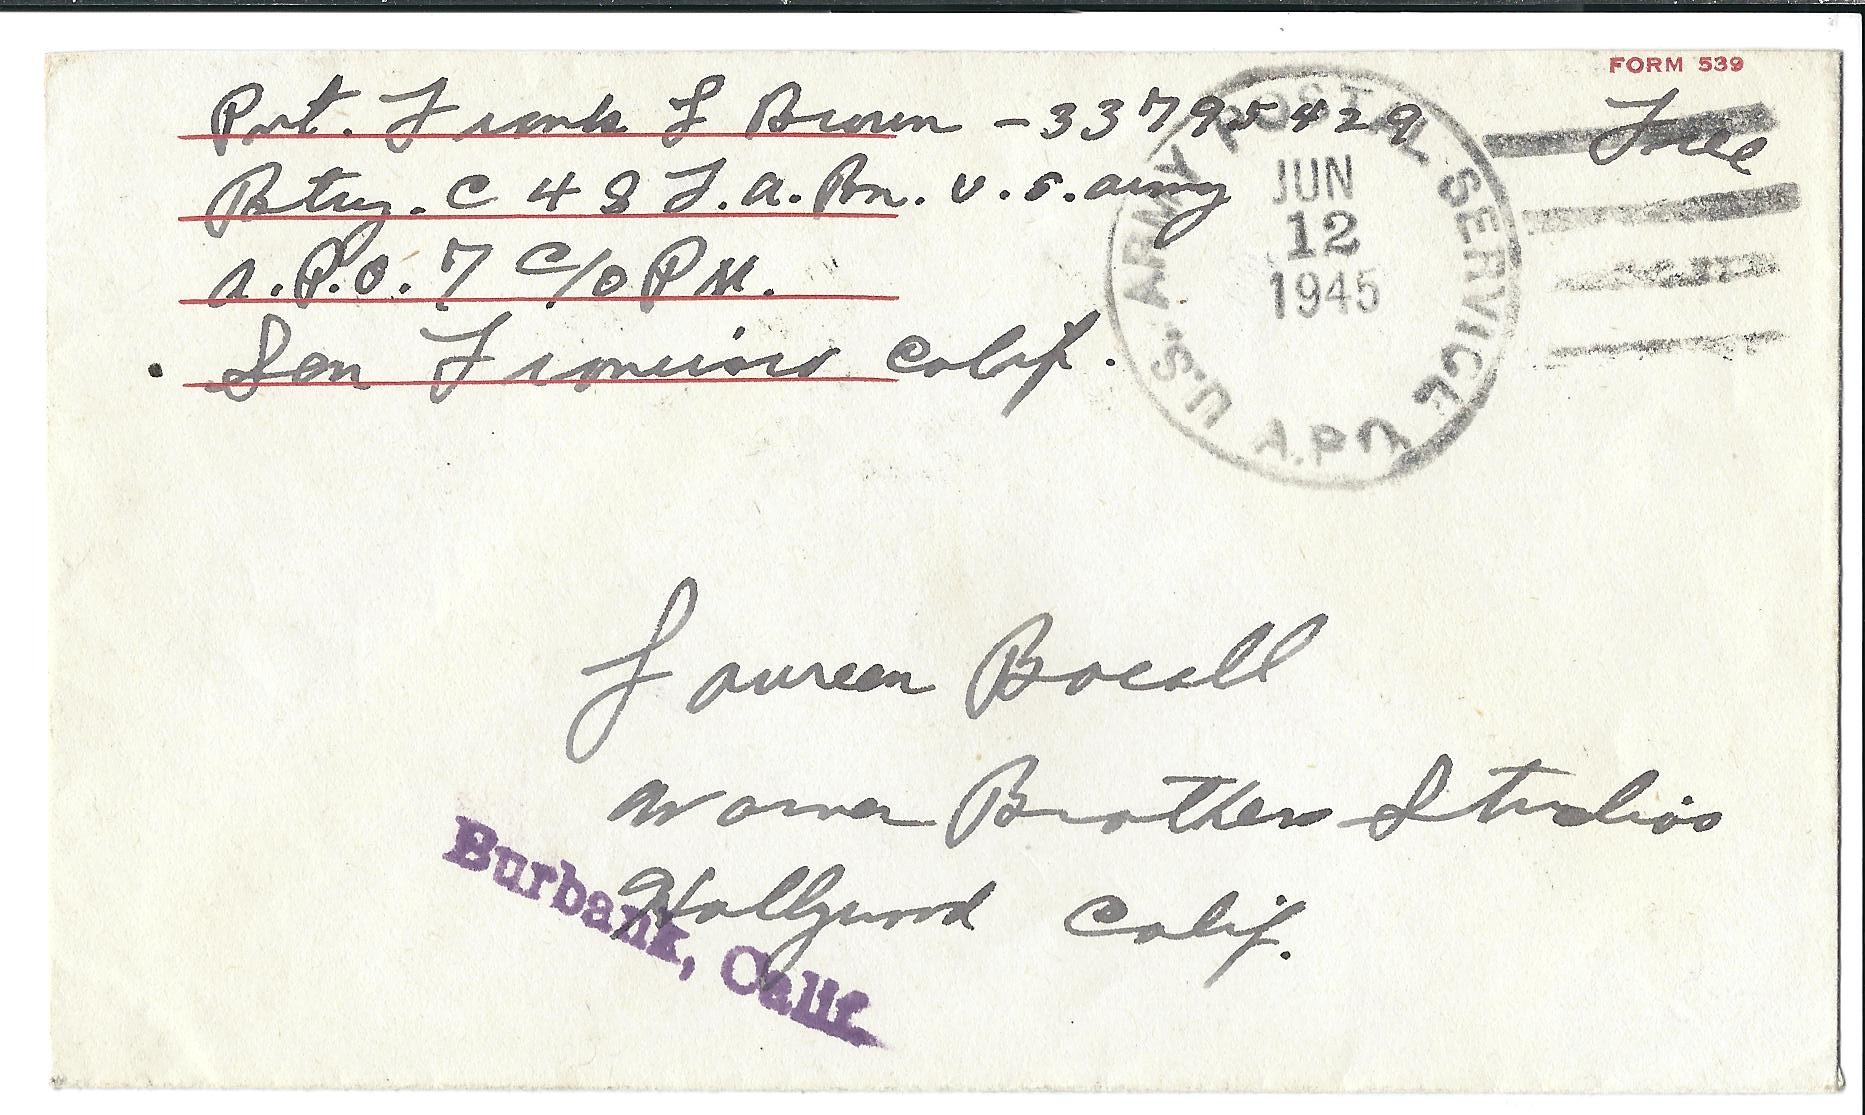 FORM 539
Pvt. Frank L Brown - 33795429
Free
Btry. C 48 F.A. Bn. U.S. Army
A.P.O. 7 C/O P.M.
San Francisco Calif.
U.S. ARMY POSTAL SERVICE
JUN
12
1945
A.P.
Laureen Bacall
Warner Brothers Studios
Hollywood Calif.
Burbank, Calif.